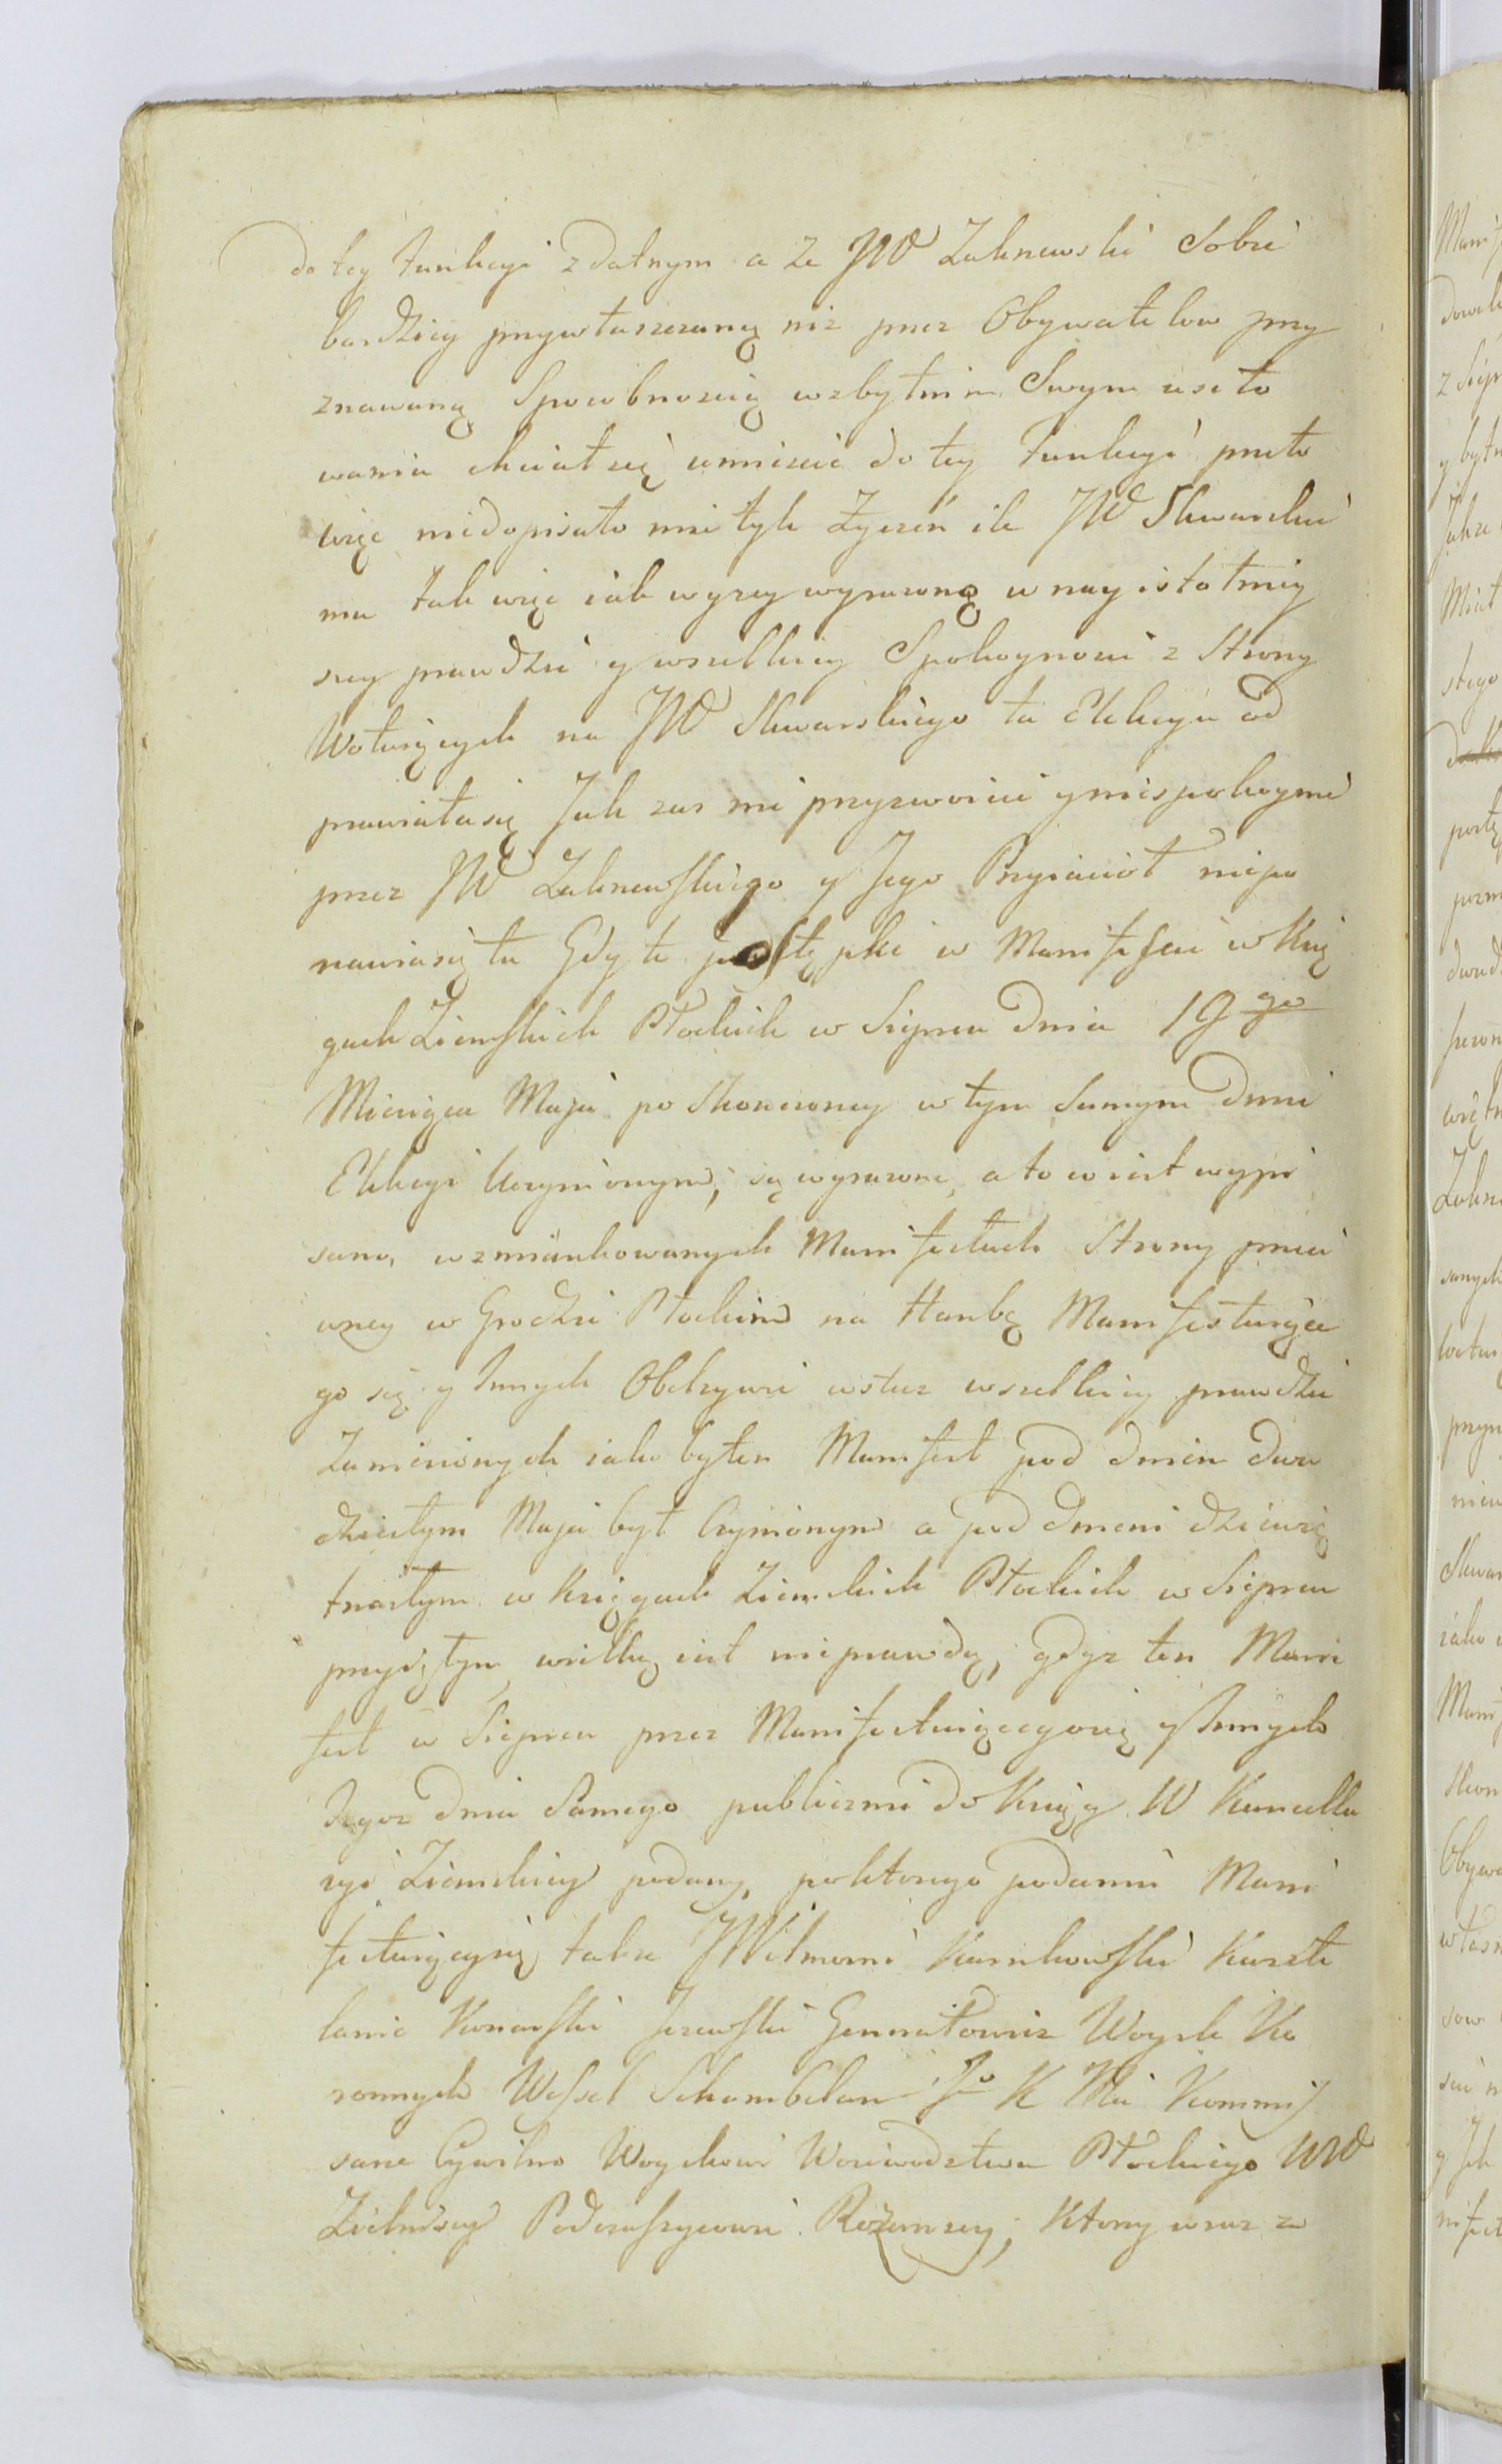 do tey funkcyi zdatnym a że JW Zakrzewski Sobie
bardziey przywłaszczaną niż przez Obywatelow przy
znawaną Sposobnością wzbytnim Swym usito
wania chciał się umieścić do tey funkcyi przeto
więc niedopisało mu tyle Życzeń ile JW Skwarskie
mu tak więc iak wyzey wyrazoną w nayistotniey
szey prawdzie y wszelkiey Spokoynosci z Strony
Wotuiących na JW Skwarskiego ta Elekcya od
prawiała się Jak zas nie przyzwoicie y niespokoynie
przez JW Zakrzewskiego y Jego Przyiacioł niepo
nawiasię tu Gdy te postępki w Manifescie w Xię
gach Ziemskich Płockich w Sierpcu Dnia 19go
Miesiąca Maja po Skonczoney w tym Samym Dniu
Elekcyi Uczynionym, są wyrazone, a to w iest wypi
sano, wzmiankowanych Manifestach Strony przeci
wney w Grodzie Płockim na Hanbę Manifestuiące
go się y Innych Obelzywie wstuz wszelkiey prawdzie
Zamienionych iako byten Manifest pod dniem dwu
dziestym Maja był Czynionym a pod dniem dziewię
tnastym w Xięgach Ziemskich Płockich w Sierpcu
przyiętym wielką iest nieprawdą, gdyz ten Mani
fest w Sierpcu przez Manifestuiącegosię y Innych
Tegoz Dnia Samego publicznie do Xiąg W Kancella
ryi Ziemskiey podany, poktorego podaniu Mani
festuiącysię takze JWielmozni Karnkowski Kaszte
lanic Konarski Jezewski Generałowie Woysk Ko
ronnych Wessel Schambelan Jo K Mci Kommis
sarze Cywilno Woyskowi Woiewodztwa Płockiego WW
Zielinscy Podczaszycowie Rozanscy, Ktorzy wraz z